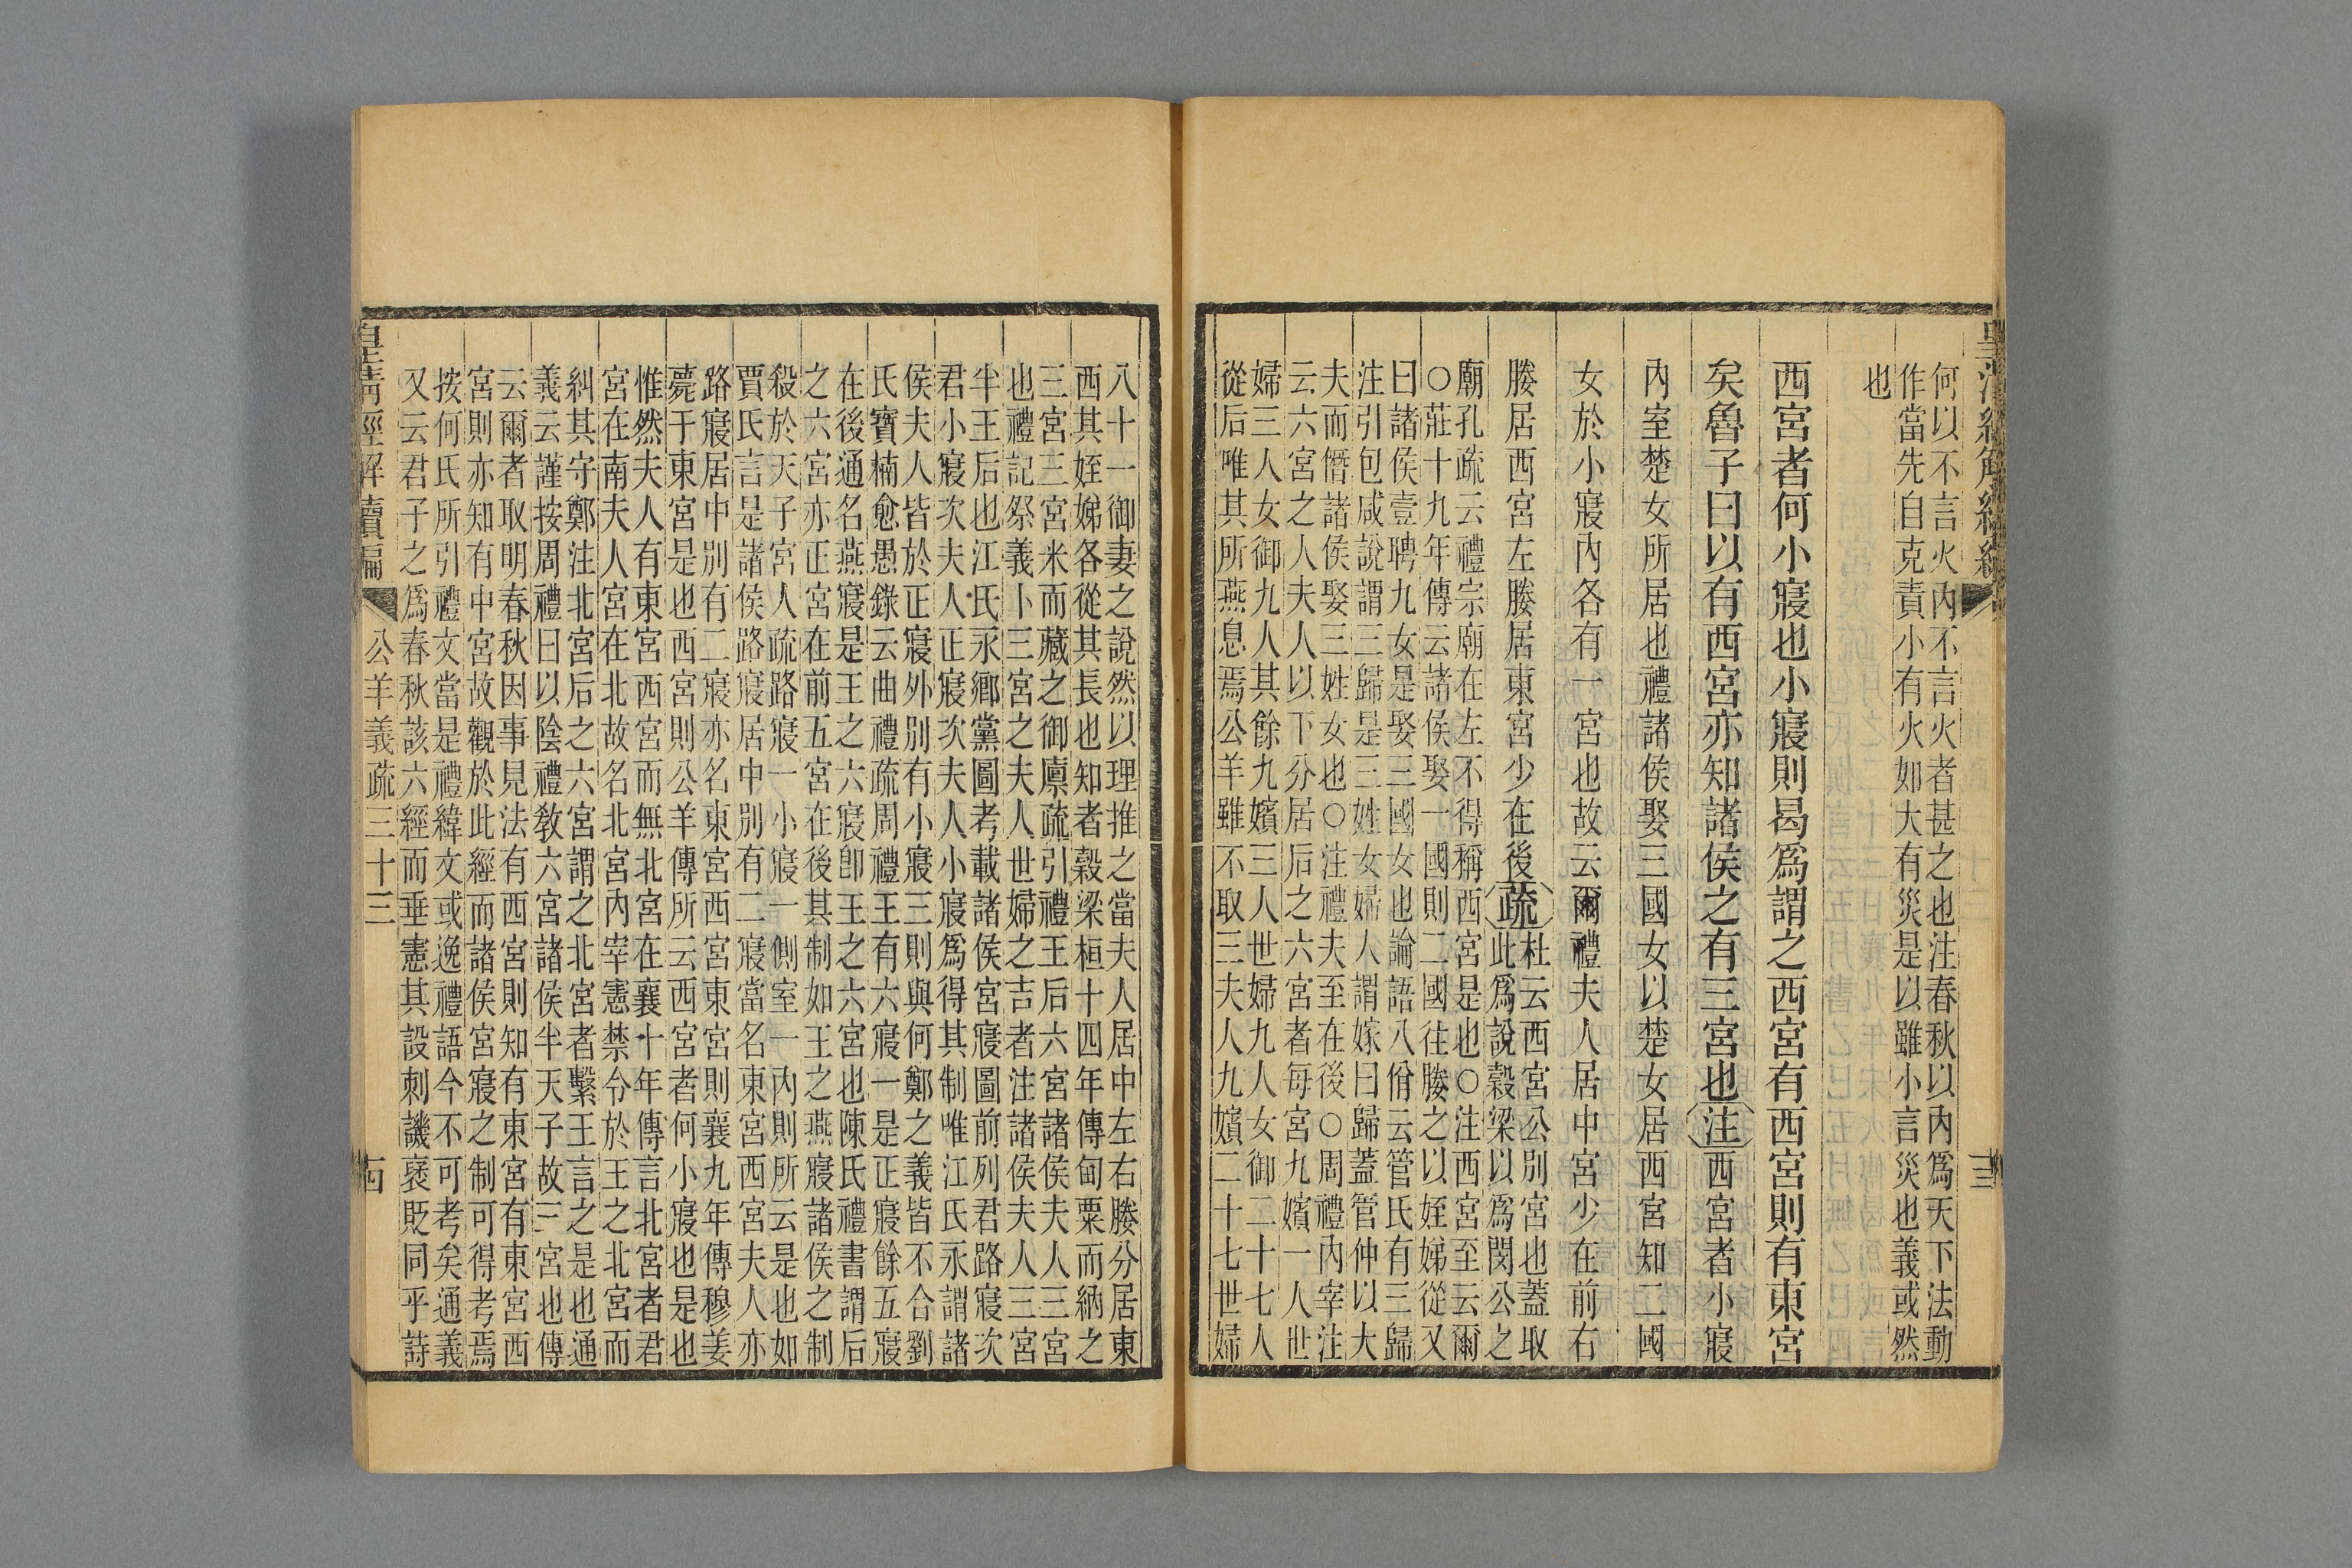 何以不言火內不言火者甚之也注春秋以內爲天下法動
作當先自克責小有火如大有災是以雖小言災也義或然
也
西宮者何小寢也小寢則曷爲謂之西宮有西宮則有東宮
矣魯子曰以有西宮亦知諸侯之有三宮也注西宮者小寢
內室楚女所居也禮諸侯娶三國女以楚女居西宮知二國
女於小寢內各有一宮也故云爾禮夫人居中宮少在前右
媵居西宮左媵居東宮少在後疏杜云西宮公別宮也蓋取
此爲說穀梁以爲閔公之
廟孔疏云禮宗廟在左不得稱西宮是也○注西宮至云爾
○莊十九年傳云諸侯娶一國則二國往媵之以姪娣從又
曰諸侯壹聘九女是娶三國女也論語八佾云管氏有三歸
注引包咸說謂三歸是三姓女婦人謂嫁曰歸蓋管仲以大
夫而僭諸侯娶三姓女也○注禮夫至在後○周禮內宰注
云六宮之人夫人以下分居后之六宮者每宮九嬪一人世
婦三人女御九人其餘九嬪三人世婦九人女御二十七人
從后唯其所燕息焉公羊雖不取三夫人九嬪二十七世婦
八十一御妻之說然以理推之當夫人居中左右媵分居東
西其姪娣各從其長也知者穀梁桓十四年傳甸粟而納之
三宮三宮米而藏之御廩疏引禮王后六宮諸侯夫人三宮
也禮記祭義卜三宮之夫人世婦之吉者注諸侯夫人三宮
半王后也江氏永鄉黨圖考載諸侯宮寢圖前列君路寢次
君小寢次夫人正寢次夫人小寢爲得其制唯江氏永謂諸
侯夫人皆於正寢外別有小寢三則與何鄭之義皆不合劉
氏寶楠愈愚錄云曲禮疏周禮王有六寢一是正寢餘五寢
在後通名燕寢是王之六寢卽王之六宮也陳氏禮書謂后
之六宮亦正宮在前五宮在後其制如王之燕寢諸侯之制
殺於天子宮人疏路寢一小寢一側室一內則所云是也如
賈氏言是諸侯路寢居中別有二寢當名東宮西宮夫人亦
路寢居中別有二寢亦名東宮西宮東宮則襄九年傳穆姜
薨于東宮是也西宮則公羊傳所云西宮者何小寢也是也
惟然夫人有東宮西宮而無北宮在襄十年傳言北宮者君
宮在南夫人宮在北故名北宮內宰憲禁令於王之北宮而
糾其守鄭注北宮后之六宮謂之北宮者繫王言之是也通
義云謹按周禮曰以陰禮敎六宮諸侯半天子故三宮也傳
云爾者取明春秋因事見法有西宮則知有東宮有東宮西
宮則亦知有中宮故觀於此經而諸侯宮寢之制可得考焉
按何氏所引禮文當是禮緯文或逸禮語今不可考矣通義
又云君子之爲春秋該六經而垂憲其設刺譏褒貶同乎詩
公羊義疏三十三